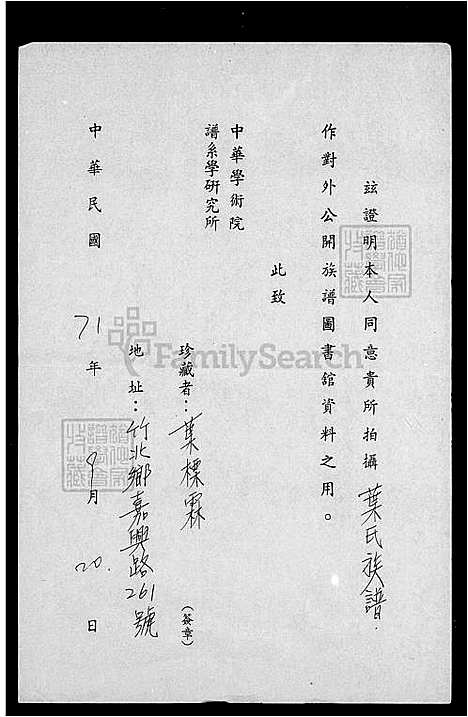 茲證明本人同意貴所拍攝葉氏族譜.
作對外公開族譜圖書舘資料之用。
此致
中華學術院
譜系學研究所
珍藏者：葉標霖（簽章）
地址：竹北鄉嘉興路261號
中華民國71年9月20.日
FamilySearch